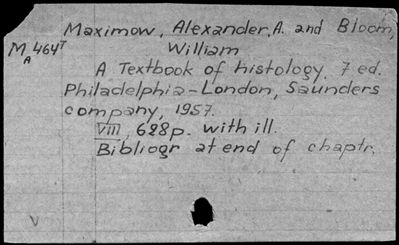 Maximow, Alexander, A. and Bloom,
M 464T
A
William
A Textbook of histology. 7 ed.
Philadelphia-London, Saunders
company, 1957.
VIII, 628p. with ill.
Bibliogr at end of chaptr.
V